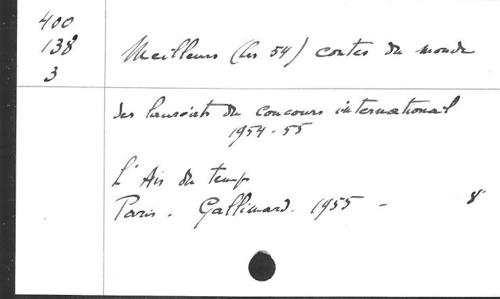 400
138
3
Meilleurs (les 54) contes du monde
des lauréats du concours international
1954-55
L'Air du temps
Paris. Gallimard. 1955 - 8°